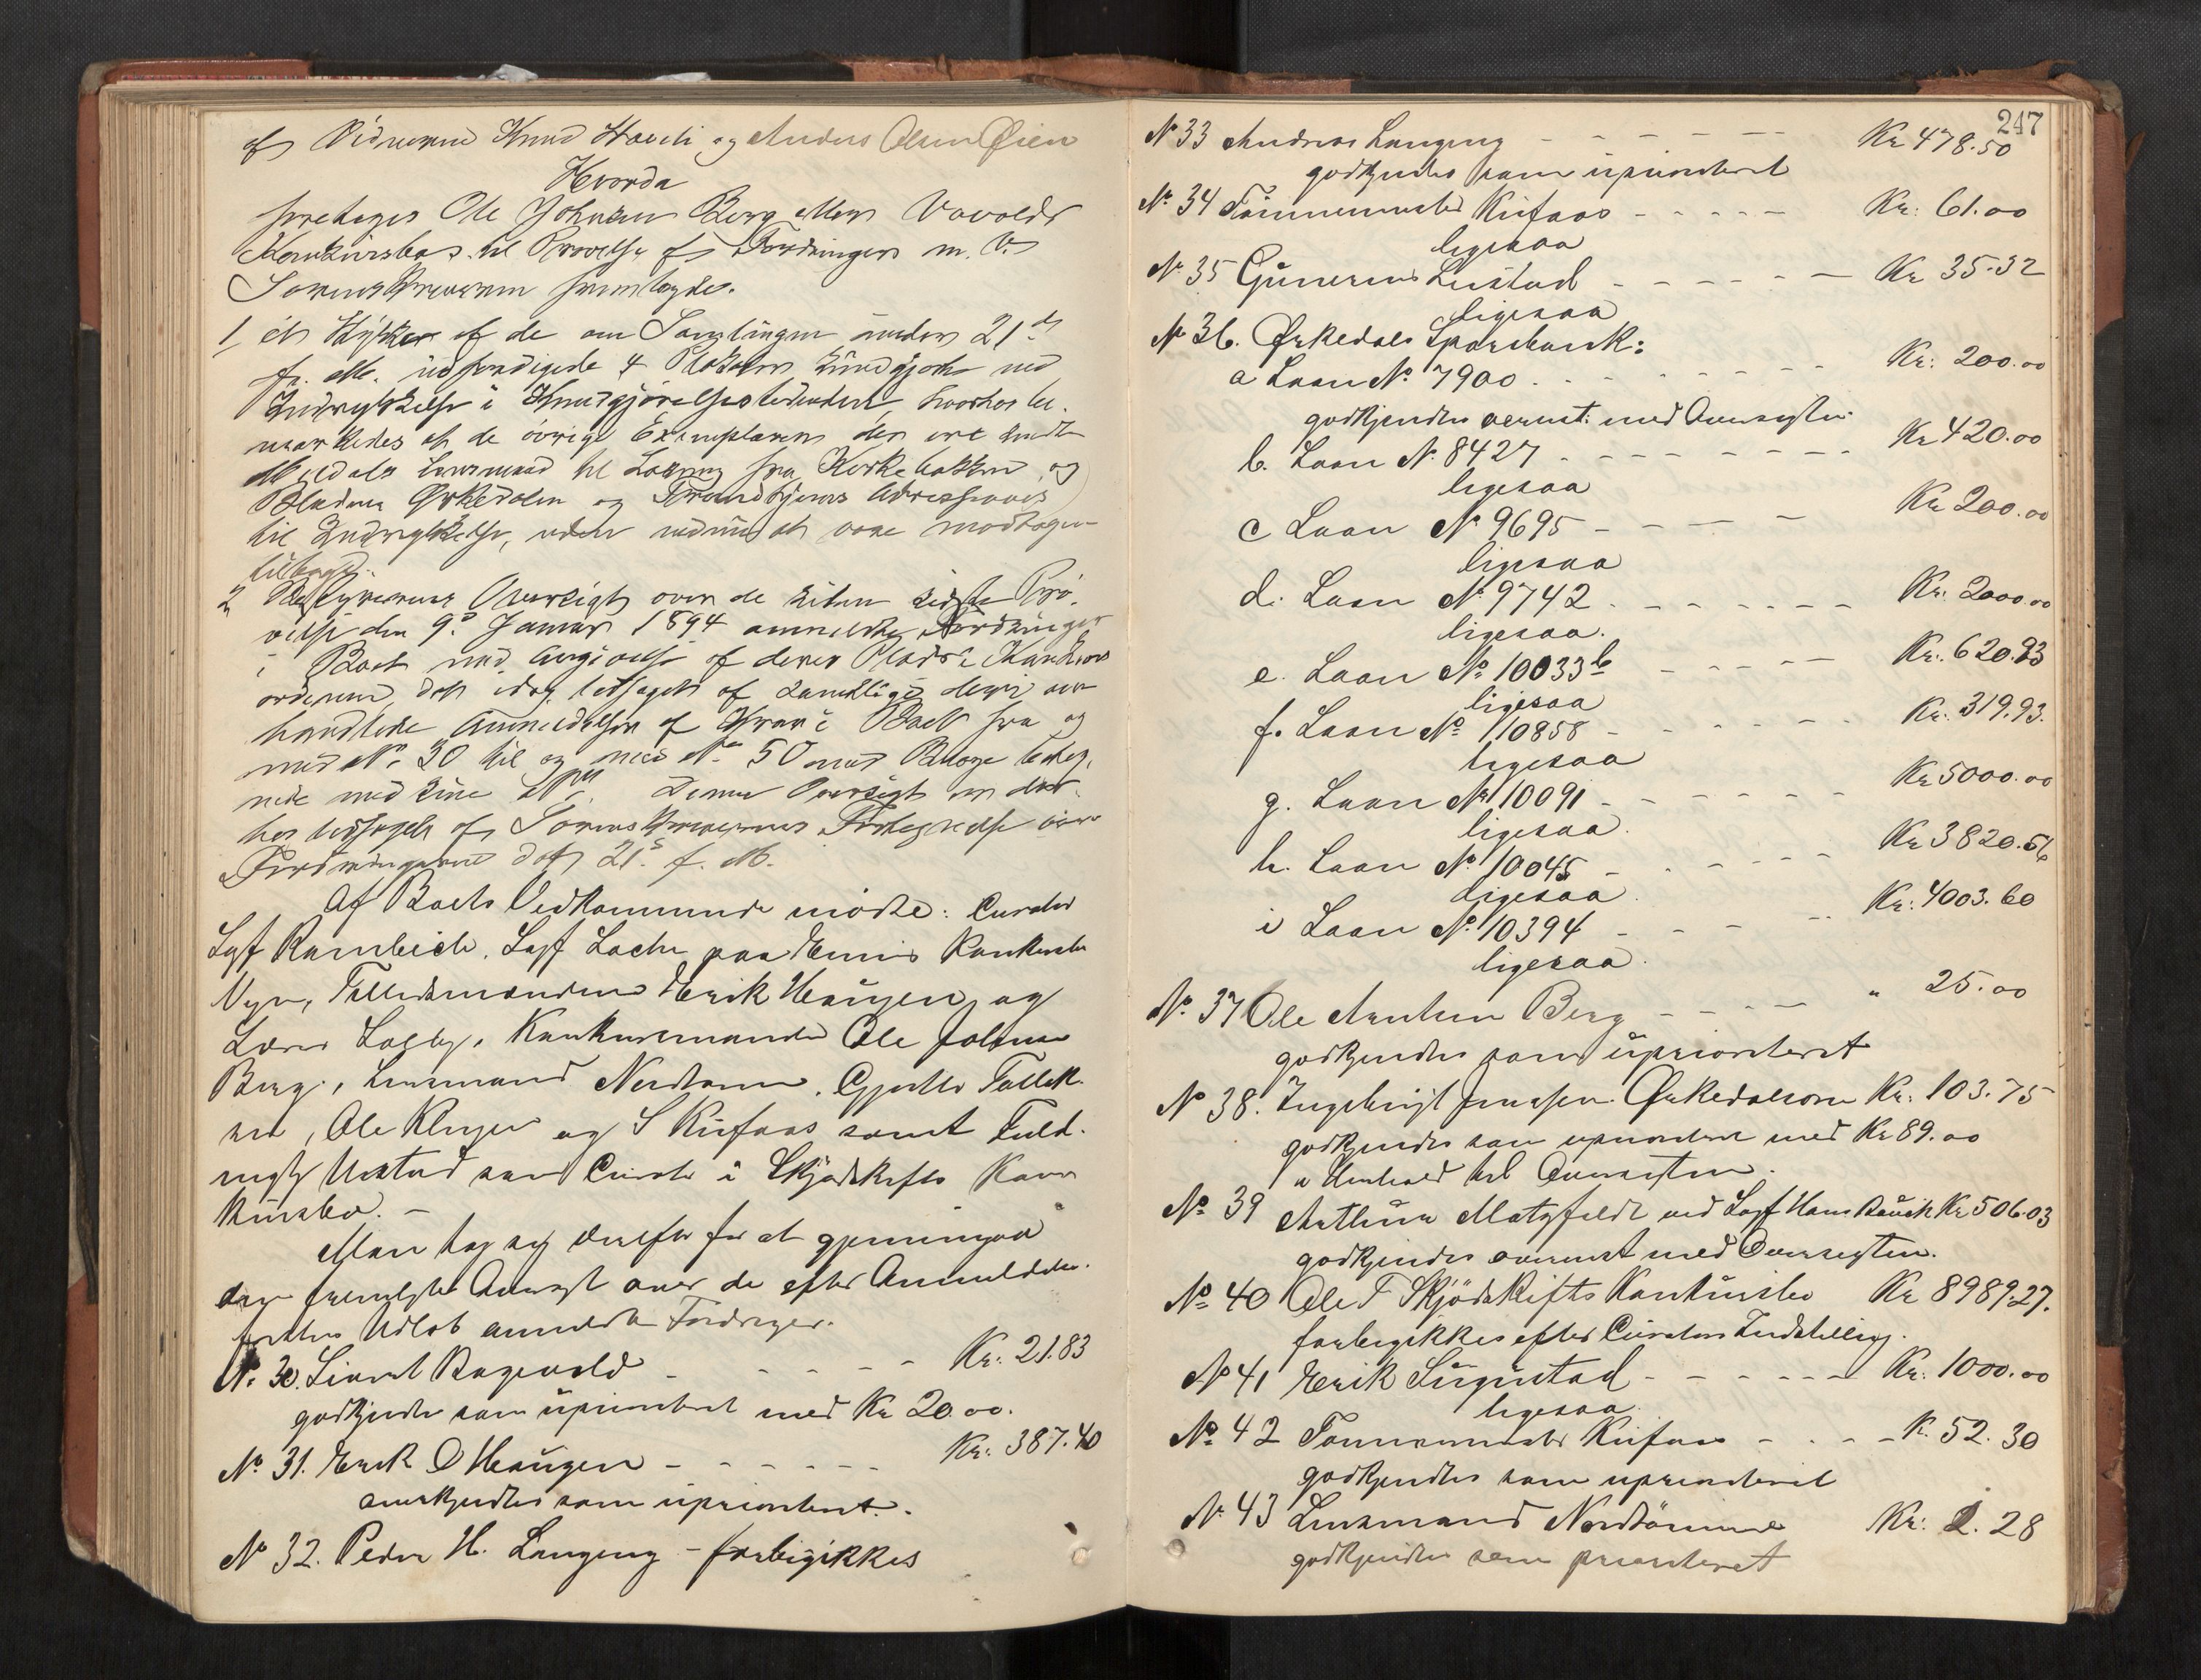 af Vidnerne Knud Hoveli og Anders Olsen Øien
Hvorda
foretoges Ole Johnsen Berg Vavolds
Konkursbo til Prøvelse af Fordringer m. V.
Sorenskriveren fremlagde.
1, et Stykke af de om Samlingen under 21de
f. M. udfærdigede 4 Plakater kundgjorte ved
Indrykkelse i Kundgjørelsestidenden, hvorhos be-
mærkedes at de øvrige Exemplarer der ere sendte
Meldals Lensmand til Læsning fra Kirkebakken og
Bladene Ørkedølen og Trondhjems Adresseavis
til Indrykkelse, uden endnu at være modtagne
tilbage.
2 Bestyrerens Oversigt over de siden sidste Prø-
velse den 9de Januar 1894 anmeldte Fordringer
i Boet med Angivelse af deres Plads i Konkurs
ordenen, dat. idag ledsaget af samtlige deri om
handlede Anmeldelser af Krav i Boet fra og
med No 30 til og med No 50 med Bilage beteg-
nede med sine No. Denne Oversigt er der-
hos ledsaget af Sorenskriverens Fortegnelse over
Fordringerne dat. 21de f. M.
Af Boets Vedkommende mødte: Curator
Sagf Rambech, Sagf Lache paa Konkurs
Vegne, Tillidsmændene Erik Haugen og
Lærer Solby, Konkursmanden Ole Johnsen
Berg, Lensmand Nordtømme,
Ole og S Kirfaas samt Fuld-
mægtig Ustad som Curator i Skjødskifts Kon-
kursbo. -
Man tog sig derefter for at gjennemgaa
den fremlagte Oversigt over de efter Anmeldelses-
fristens Udløb anmeldte Fordringer.
No 30. Sivert Ragevold - - - - Kr: 21.83
godkjendtes som uprioriteret med Kr 20.00.
No 31. Erik O Haugen - - - - - - Kr: 387.40
anerkjendtes som uprioriteret.
No 32. Peder H. Langeng - forbigikkes
247
No 33 Andreas Langeng - - - - - - Kr 478.50
godkjendtes som uprioriteret
No 34 Tømmermester Kirfaas - - - - - Kr: 61.00
ligesaa
No 35 Gunerius Lustad - - - - - - Kr 35.32
ligesaa
No 36. Ørkedals Sparebank:
a Laan No 7900 - - - - - - - - Kr: 200.00
godkjendtes overenst: med Oversigten.
b. Laan No 8427 - - - - - - - - Kr 420.00
ligesaa
c Laan No 9695 - - - - - Kr 200.00
ligesaa
d. Laan No 9742 - - - - - - - Kr: 2000.00
ligesaa.
e. Laan No 10033b - - - - - Kr: 620.93
ligesaa
f. Laan No 10858 - - - - - - Kr: 319.93.
ligesaa
g. Laan No 10091 - - - - - - - Kr 5000.00
ligesaa.
h. Laan No 10045 - - - - - - Kr 3820.56
Ligesaa.
i Laan No 10394 - - - - - Kr: 4003.60
ligesaa.
No 37 Ole Arntsen Berg - - - - " 25.00
godkjendtes som uprioriteret
No 38. Ingebrigt Jonassen Ørkedalsøren Kr: 103.75
godkjendtes som uprioriteret med Kr 89.00
i Henhold til Oversigten.
No 39 Arthur Motzfeldt ved Sagf Hans Bauck Kr 506.03
godkjendes overenst med Oversigten.
No 40 Ole T Skjødskifts Konkursbo Kr 8989.27.
forbigikkes efter Curators Indstilling.
No 41 Erik Sugustad - - - - - - Kr: 1000.00
ligesaa.
No 42 Tømmermester Kirfaas - - - - K. 52.30
godkjendtes som uprioriteret
No 43 Lensmand Nordtømme Kr: 2.28
godkjendtes som prioriteret